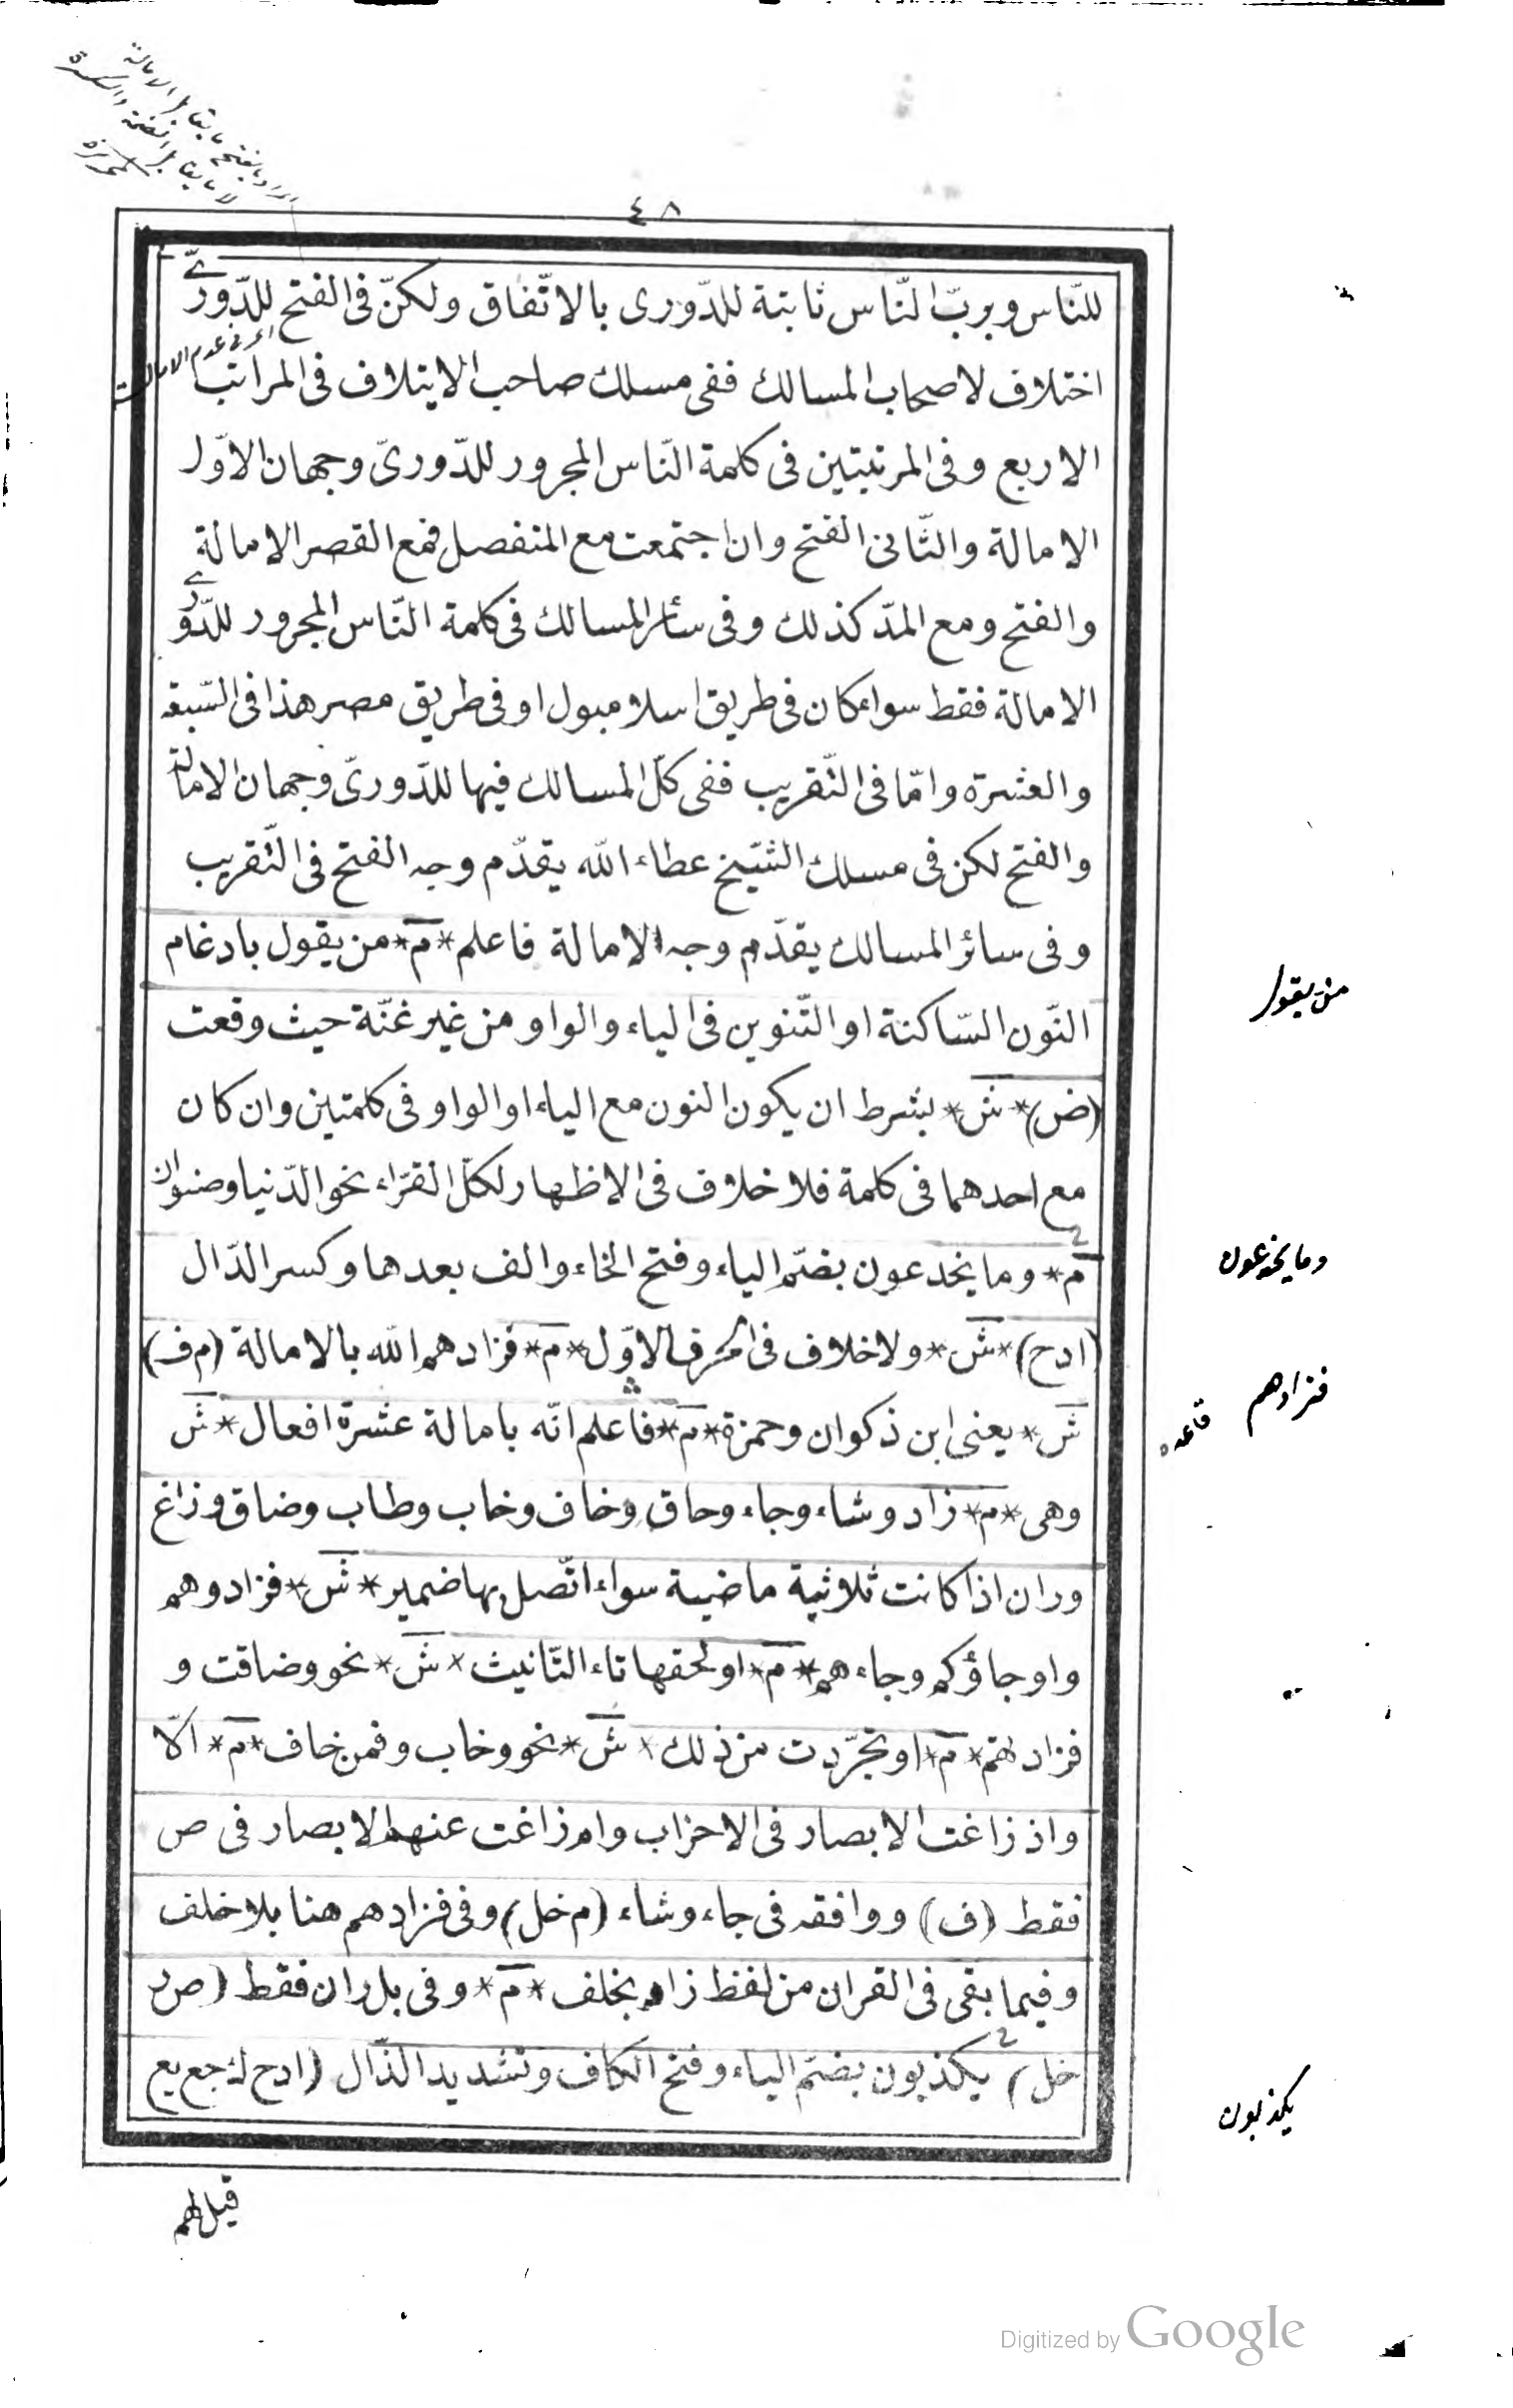 ٤٨
للنّاس وبربّ النّاس ثابتة للدّورى بالاتّفاق ولكنّ فى الفتح للدّورىّ
اى فى عدم الامالة
اختلاف لاصحاب المسالك ففى مسلك صاحب الايتلاف فى المراتب
الاربع وفى المرتبتين فى كلمة النّاس المجرور للدّورىّ وجهان الاوّل
الامالة والثّانى الفتح وان اجتمعت مع المنفصل فمع القصر الامالة
والفتح ومع المدّ كذلك وفى سائر المسالك فى كلمة النّاس المجرور للدّورى
الامالة فقط سواء كان فى طريق اسلامبول او فى طريق مصر هذا فى السّبعة
والعشرة وامّا فى التّقريب ففى كلّ المسالك فيها للدّورىّ وجهان الامالة
والفتح لكن فى مسلك الشّيخ عطاء الله يقدّم وجه الفتح فى التّقريب
وفى سائر المسالك يقدّم وجه الامالة فاعلم * م * من يقول بادغام
من يقول
النّون السّاكنة او التّنوين فى الياء والواو من غير غنّة حيث وقعت
(ض) * ش * بشرط ان يكون النون مع الياء او الواو فى كلمتين وان كان
مع احدهما فى كلمة فلا خلاف فى الاظهار لكلّ القرّاء نحو الدّنيا وصنوان
م * وما يخدعون بضمّ الياء وفتح الخاء والف بعدها وكسر الدّال
وما يخدعون
(ا د ح) * ش * ولا خلاف فى الحرف الاوّل * م * فزادهم الله بالامالة (م ف)
فزادهم
ش * يعنى ابن ذكوان وحمزة * م * فاعلم انّه بامالة عشرة افعال * ش
قاعده
وهى * م * زاد وشاء وجاء وحاق وخاف وخاب وطاب وضاق وزاغ
وران اذا كانت ثلاثية ماضية سواء اتّصل بها ضمير * ش * فزادوهم
واو جاؤكم وجاءهم * م * او لحقها تاء التّانيث * ش * نحو وضاقت و
فزادتهم * م * او تجرّدت من ذلك * ش * نحو وخاب وفمن خاف * م * الّا
واذ زاغت الابصار فى الاحزاب وام زاغت عنهم الابصار فى ص
فقط (ف) ووافقه فى جاء وشاء (م خل) وفى فزادهم هنا بلا خلف
وفيما بقى فى القران من لفظ زاد بخلف * م * وفى بل ران فقط (ص ر
خل) يكذبون بضمّ الياء وفتح الكاف وتشديد الذّال (ا د ح ك جع يع
يكذبون
قيل لهم
Digitized by Google